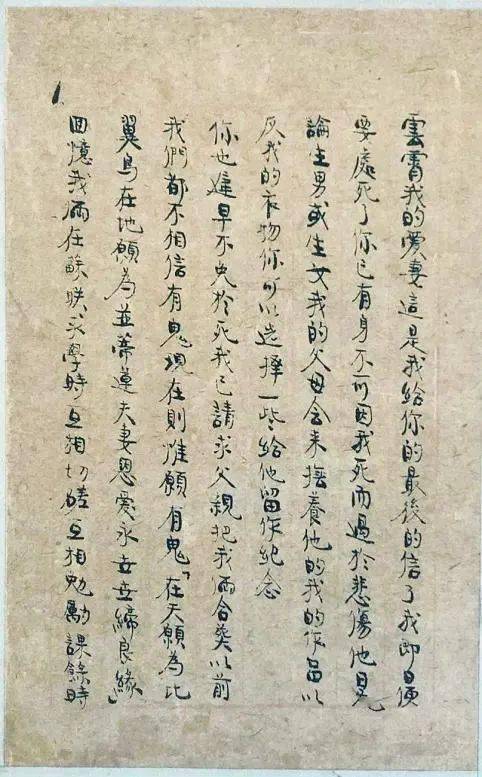 雲霄我的愛妻這是我給你的最後的信了我即日便
要處死了你已有身不可因我死而過於悲傷他日无
論生男或生女我的父母会来撫養他的我的作品以
及我的衣物你可以选擇一些給他留作紀念
你也遲早不免於死我已請求父親把我倆合葬以前
我們都不相信有鬼現在則惟願有鬼「在天願為比
翼鳥在地願為並蒂蓮夫妻恩愛永世世締良緣」
回憶我倆在蘇联求學時互相切磋互相勉勵課餘時